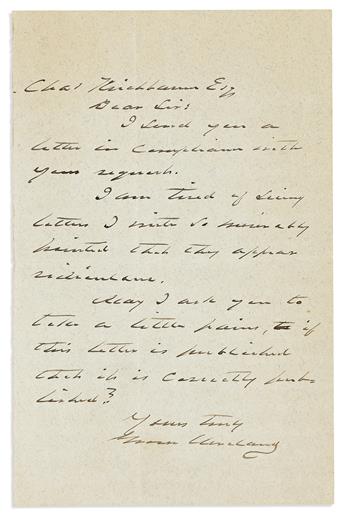 Chas Kirchbaum Esq
Dear Sir:
I send you a
letter in compliance with
your request.
I am tired of seeing
letters I write so miserably
printed that they appear
ridiculous.
May I ask you to
take a little pains, if
this letter is published
that it is correctly pub-
lished?
Yours truly
Grover Cleveland